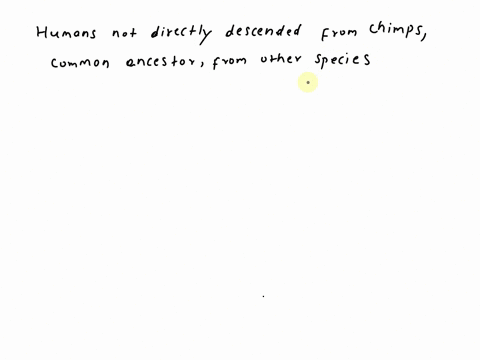 Humans not directly descended from chimps,
common ancestor, from other species